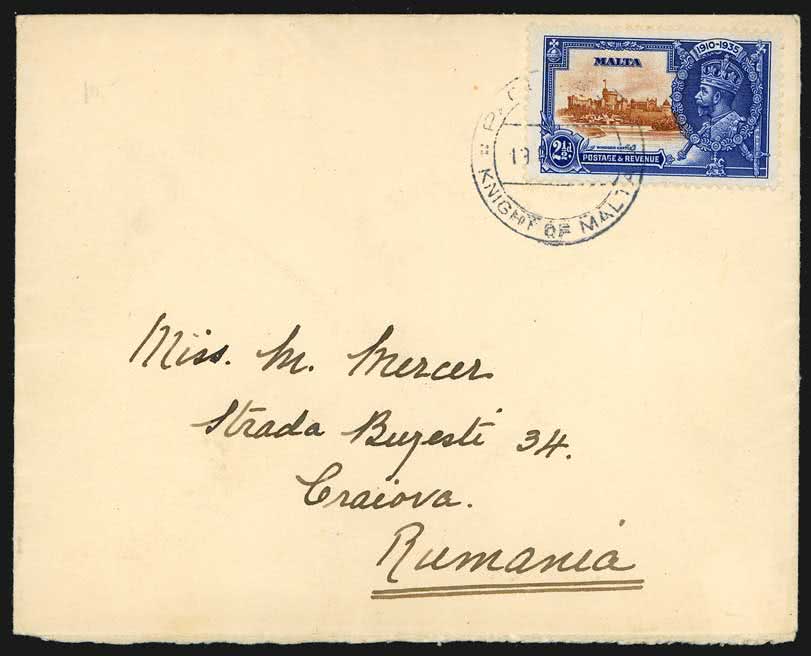 1910-1935
MALTA
WINDSOR CASTLE
2½d.
POSTAGE & REVENUE
KNIGHT OF MALTA
Miss. M. Mercer
Strada Buzesti 34.
Craiova.
Rumania